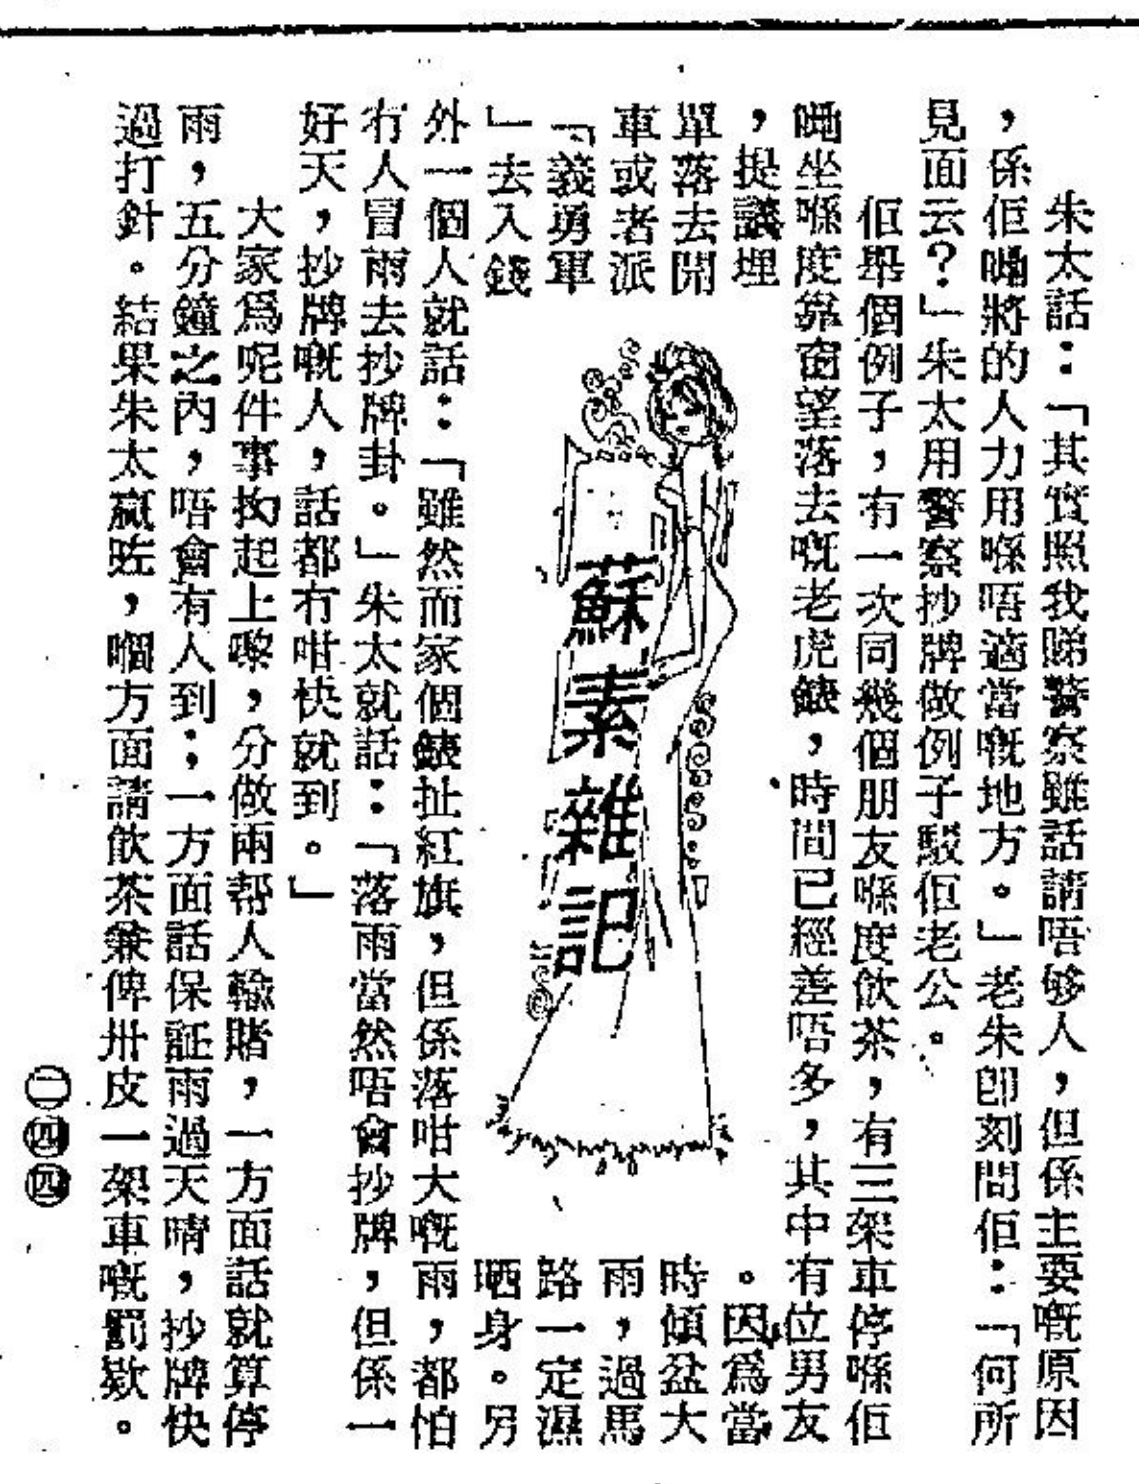 朱太話：「其實照我睇警察雖話請唔够人，但係主要嘅原因
，係佢哋將的人力用喺唔適當嘅地方。」老朱卽刻問佢：「何所
見面云？」朱太用警察抄牌做例子駁佢老公。
佢舉個例子，有一次同幾個朋友喺度飲茶，有三架車停喺佢
哋坐喺度靠窗望落去嘅老虎錶，時間已經差唔多，其中有位男友
，提議埋
單落去開
車或者派
「義勇軍
」去入錢
蘇素雜記
。因爲當
時傾盆大
雨，過馬
路一定濕
晒身。另
外一個人就話：「雖然而家個錶扯紅旗，但係落咁大嘅雨，都怕
冇人冒雨去抄牌卦。」朱太就話：「落雨當然唔會抄牌，但係一
好天，抄牌嘅人，話都冇咁快就到。」
大家爲呢件事拗起上嚟，分做兩幫人輸賭，一方面話就算停
雨，五分鐘之內，唔會有人到；一方面話保証雨過天晴，抄牌快
過打針。結果朱太贏咗，嗰方面請飲茶兼俾卅皮一架車嘅罰欵。
㊁㊃㊃